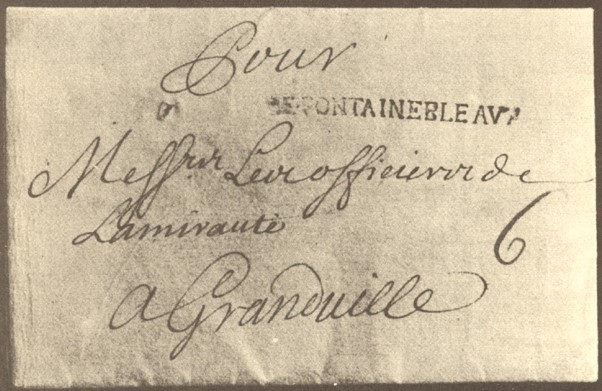 Pour
DE FONTAINEBLEAV
Messrs Les officiers de
Lamirauté
6
a Grandville